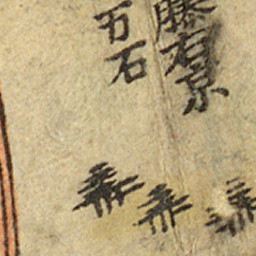 藤右京
万石